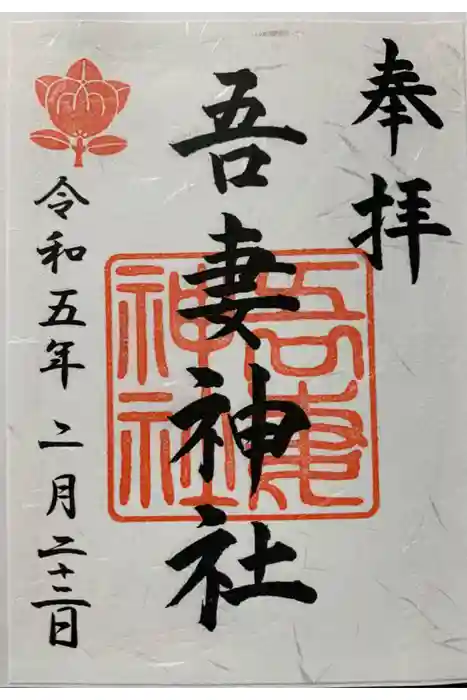 奉拝
吾妻神社
吾妻
神社
令和五年 二月 二十二日